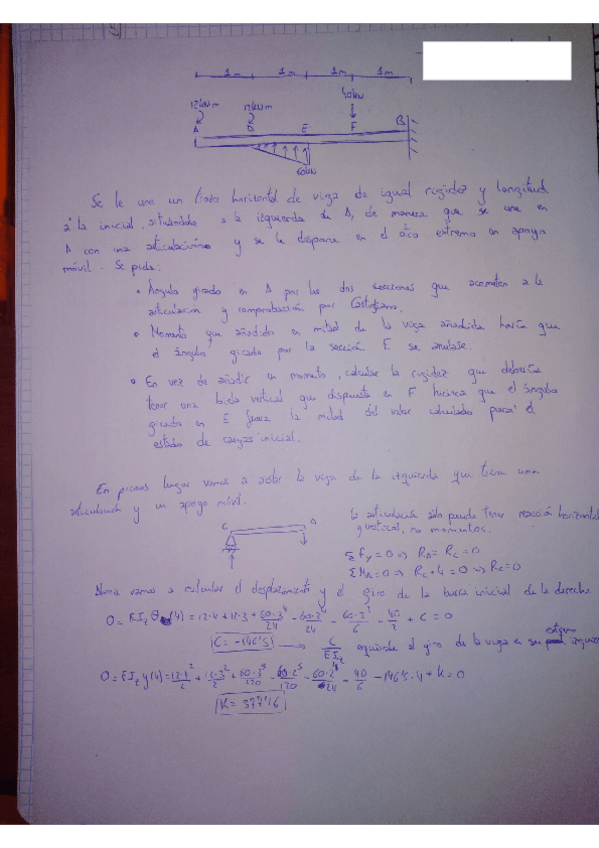 1m 1m 1m 1m
40kN
12kN·m 12kN·m
A D E F B
60kN
Se le une un trazo horizontal de viga de igual rigidez y longitud
a la inicial, situándolo a la izquierda de A, de manera que se une en
A con una articulación y se le dispone en el otro extremo un apoyo
móvil. Se pide:
• Ángulo girado en A por las dos secciones que acometen a la
articulación y comprobación por Castigliano.
• Momento que añadido en mitad de la viga añadida haría que
el ángulo girado por la sección E se anulase.
• En vez de añadir un momento, calcular la rigidez que debería
tener una biela vertical que dispuesta en F hiciera que el ángulo
girado en E fuera la mitad del valor calculado para el
estado de cargas inicial.
En primer lugar vamos a aislar la viga de la izquierda que tiene una
articulación y un apoyo móvil.
C A
la articulación sólo puede tener reacción horizontal
y vertical, no momentos.
ΣFy=0 => RA = RC = 0
ΣMA=0 => RC·4=0 => RC=0
Ahora vamos a calcular el desplazamiento y el giro de la barra inicial de la derecha
0 = EIz θ(4) = 12·4 + 12·3 + 60·3⁴/24 - 60·2⁴/24 - 60·2³/6 - 40/2 + C = 0
C = -146'5 → C/EIz equivale al giro de la viga en su extremo izquierdo
0 = EIz y(4) = 12·4²/2 + 12·3²/2 + 60·3⁵/120 - 60·2⁵/120 - 60·2⁴/24 - 40/6 - 146'5·4 + K = 0
K = 377'16